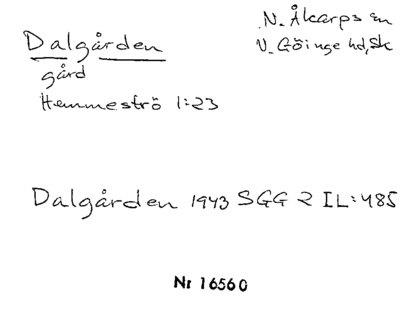 Dalgården
gård
Hemmeströ 1:23
N. Åkarps sn
V. Göinge hd, Sk
Dalgården 1943 SGG 2 II:485
Nr 16560